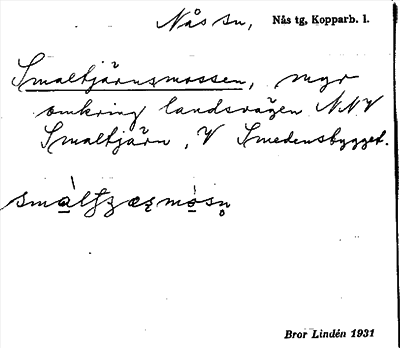 Nås sn, Nås tg, Kopparb. l.
Smaltjärnsmossen, myr
omkring landsvägen NNV
Smaltjärn, V Smedensbygget.
Bror Lindén 1931